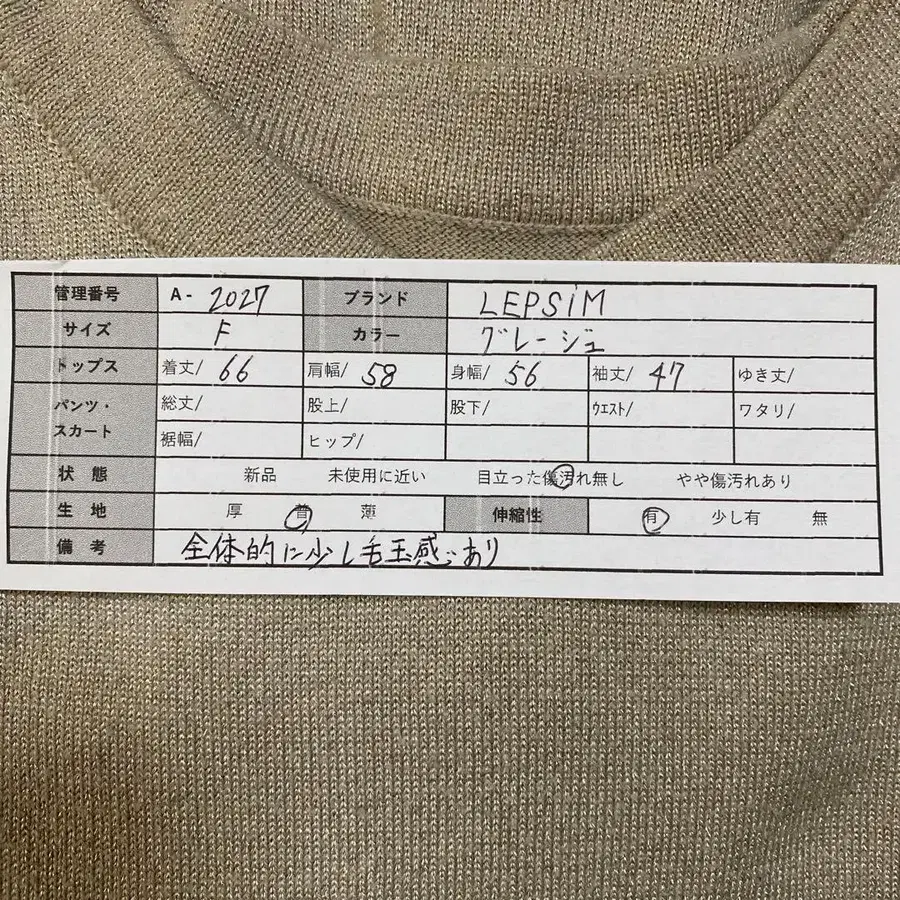 管理番号 A- 2027 ブランド LEPSiM
サイズ F カラー グレージュ
トップス 着丈/ 66 肩幅/ 58 身幅/ 56 袖丈/ 47 ゆき丈/
パンツ・スカート 総丈/ 股上/ 股下/ ウエスト/ ワタリ/
裾幅/ ヒップ/
状態 新品 未使用に近い 目立った傷汚れ無し やや傷汚れあり
生地 厚 普 薄 伸縮性 有 少し有 無
備考 全体的に少し毛玉感あり